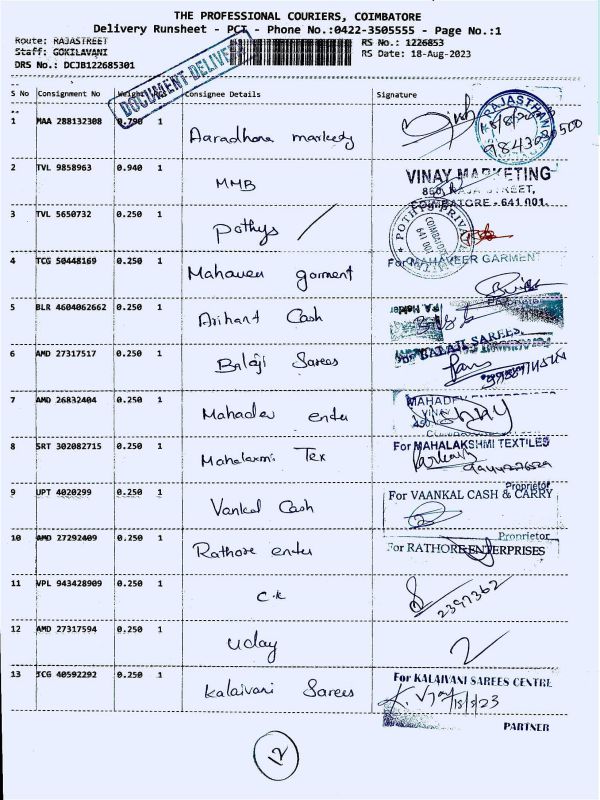 THE PROFESSIONAL COURIERS, COIMBATORE
Delivery Runsheet - PCT - Phone No.:0422-3505555 - Page No.:1
Route: RAJASTREET
RS No.: 1226853
Staff: GOKILAVANI
RS Date: 18-Aug-2023
DRS No.: DCJB122685301
DOCUMENT DELIVERY
S No Consignment No Weight Consignee Details Signature
1 MAA 288132308 0.790 1 Aaradhana
RAJASTHAN
2 TVL 9858963 0.940 1 MMB
VINAY MARKETING
RAJA STREET,
COIMBATORE - 641 001.
3 TVL 5650732 0.250 1 Pothys
POTHYS PRIVATE LIMITED
COIMBATORE
641 001
4 TCG 50448169 0.250 1 Mahaveer garment
For MAHAVEER GARMENT
5 BLR 4604062662 0.250 1 Arihant Cash
P.A. Holder
Proprietor
6 AMD 27317517 0.250 1 Balaji Sarees
For BALAJI SAREES
7 AMD 26832404 0.250 1 Mahadev enter
MAHADEV
8 SRT 302082715 0.250 1 Mahalaxmi Tex
For MAHALAKSHMI TEXTILES
Proprietor
9 UPT 4020299 0.250 1 Vankal Cash
For VAANKAL CASH & CARRY
Proprietor
10 AMD 27292409 0.250 1 Rathore enter
For RATHORE ENTERPRISES
11 VPL 943428909 0.250 1 C.K
2397362
12 AMD 27317594 0.250 1 Uday
13 TCG 40592292 0.250 1 Kalaivani Sarees
For KALAIVANI SAREES CENTRE
PARTNER
12